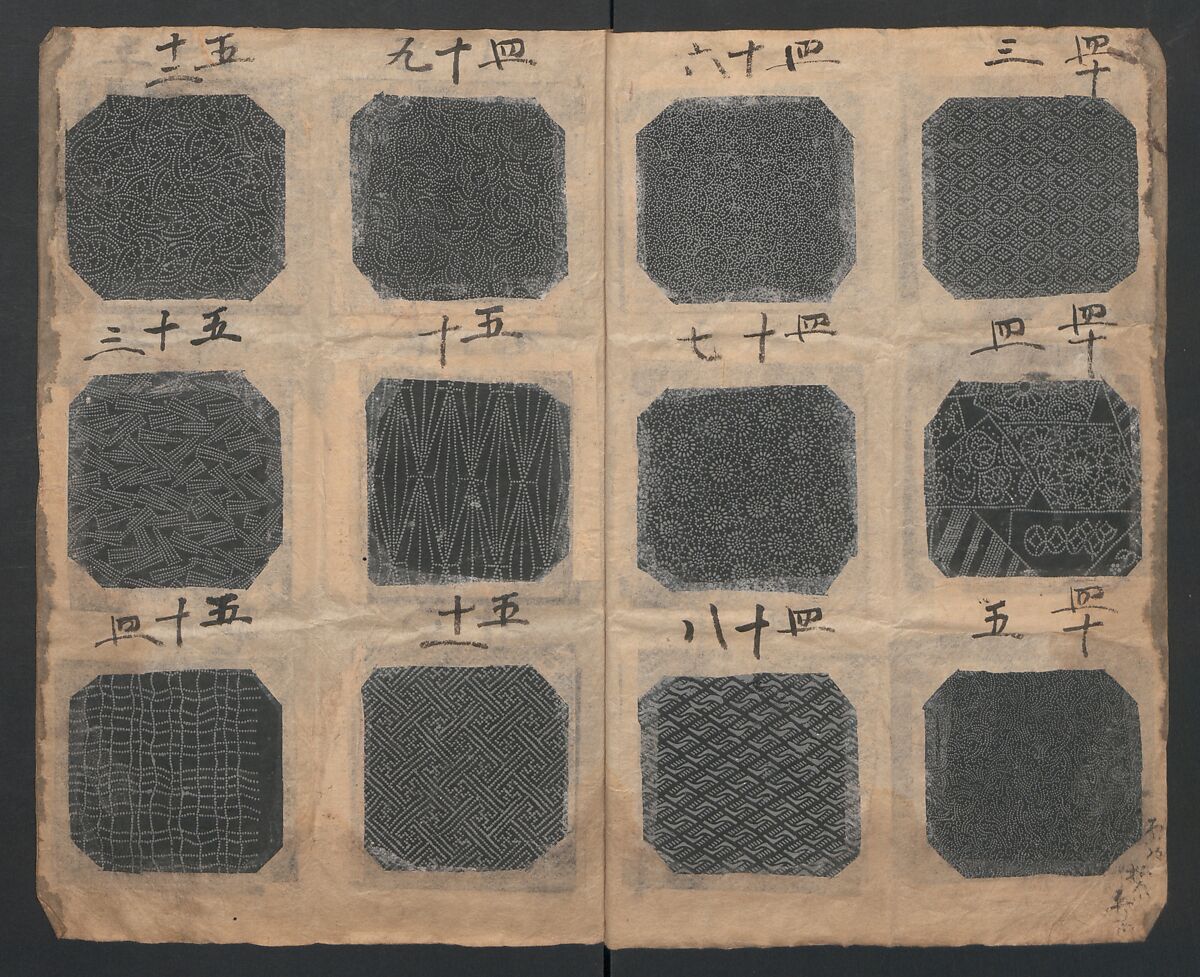 四十三
四十四
四十五
四十六
四十七
四十八
四十九
五十
五十一
五十二
五十三
五十四